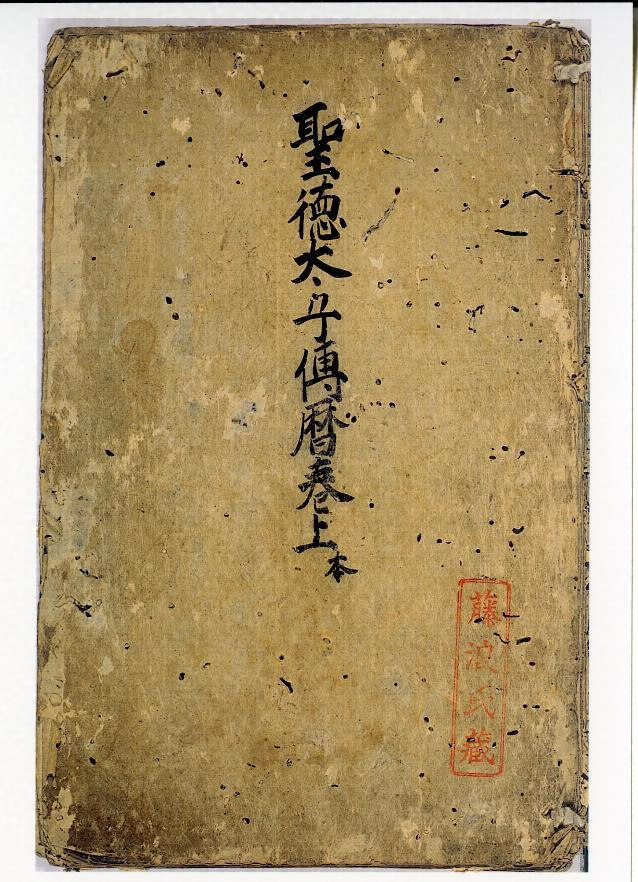 聖徳太子傳暦巻上本
藤浪氏藏